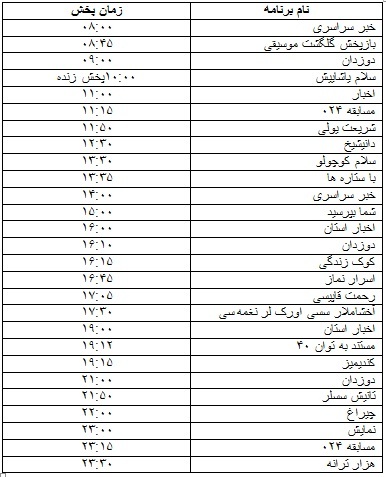 نام برنامه	زمان پخش
خبر سراسری	۰۸:۰۰
بازپخش گلگشت موسیقی	۰۸:۴۵
دوزدان	۰۹:۰۰
سلام یاشاییش	۱۰:۰۰پخش زنده
اخبار	۱۱:۰۰
مسابقه ۰۲۴	۱۱:۱۵
شریعت یولی	۱۱:۵۰
دانیشیخ	۱۲:۳۰
سلام کوچولو	۱۳:۳۰
با ستاره ها	۱۳:۳۵
خبر سراسری	۱۴:۰۰
شما بپرسید	۱۵:۰۰
اخبار استان	۱۶:۰۰
دوزدان	۱۶:۱۰
کوک زندگی	۱۶:۱۵
اسرار نماز	۱۶:۴۵
رحمت قاپیسی	۱۷:۰۵
آخشاملار سسی اورک لر نغمه سی	۱۷:۳۰
اخبار استان	۱۹:۰۰
مستند به توان ۴۰	۱۹:۱۲
کندیمیز	۱۹:۱۵
دوزدان	۲۱:۰۰
تانیش سسلر	۲۱:۵۰
چیراغ	۲۲:۰۰
نمایش	۲۳:۰۰
مسابقه ۰۲۴	۲۳:۱۵
هزار ترانه	۲۳:۳۰